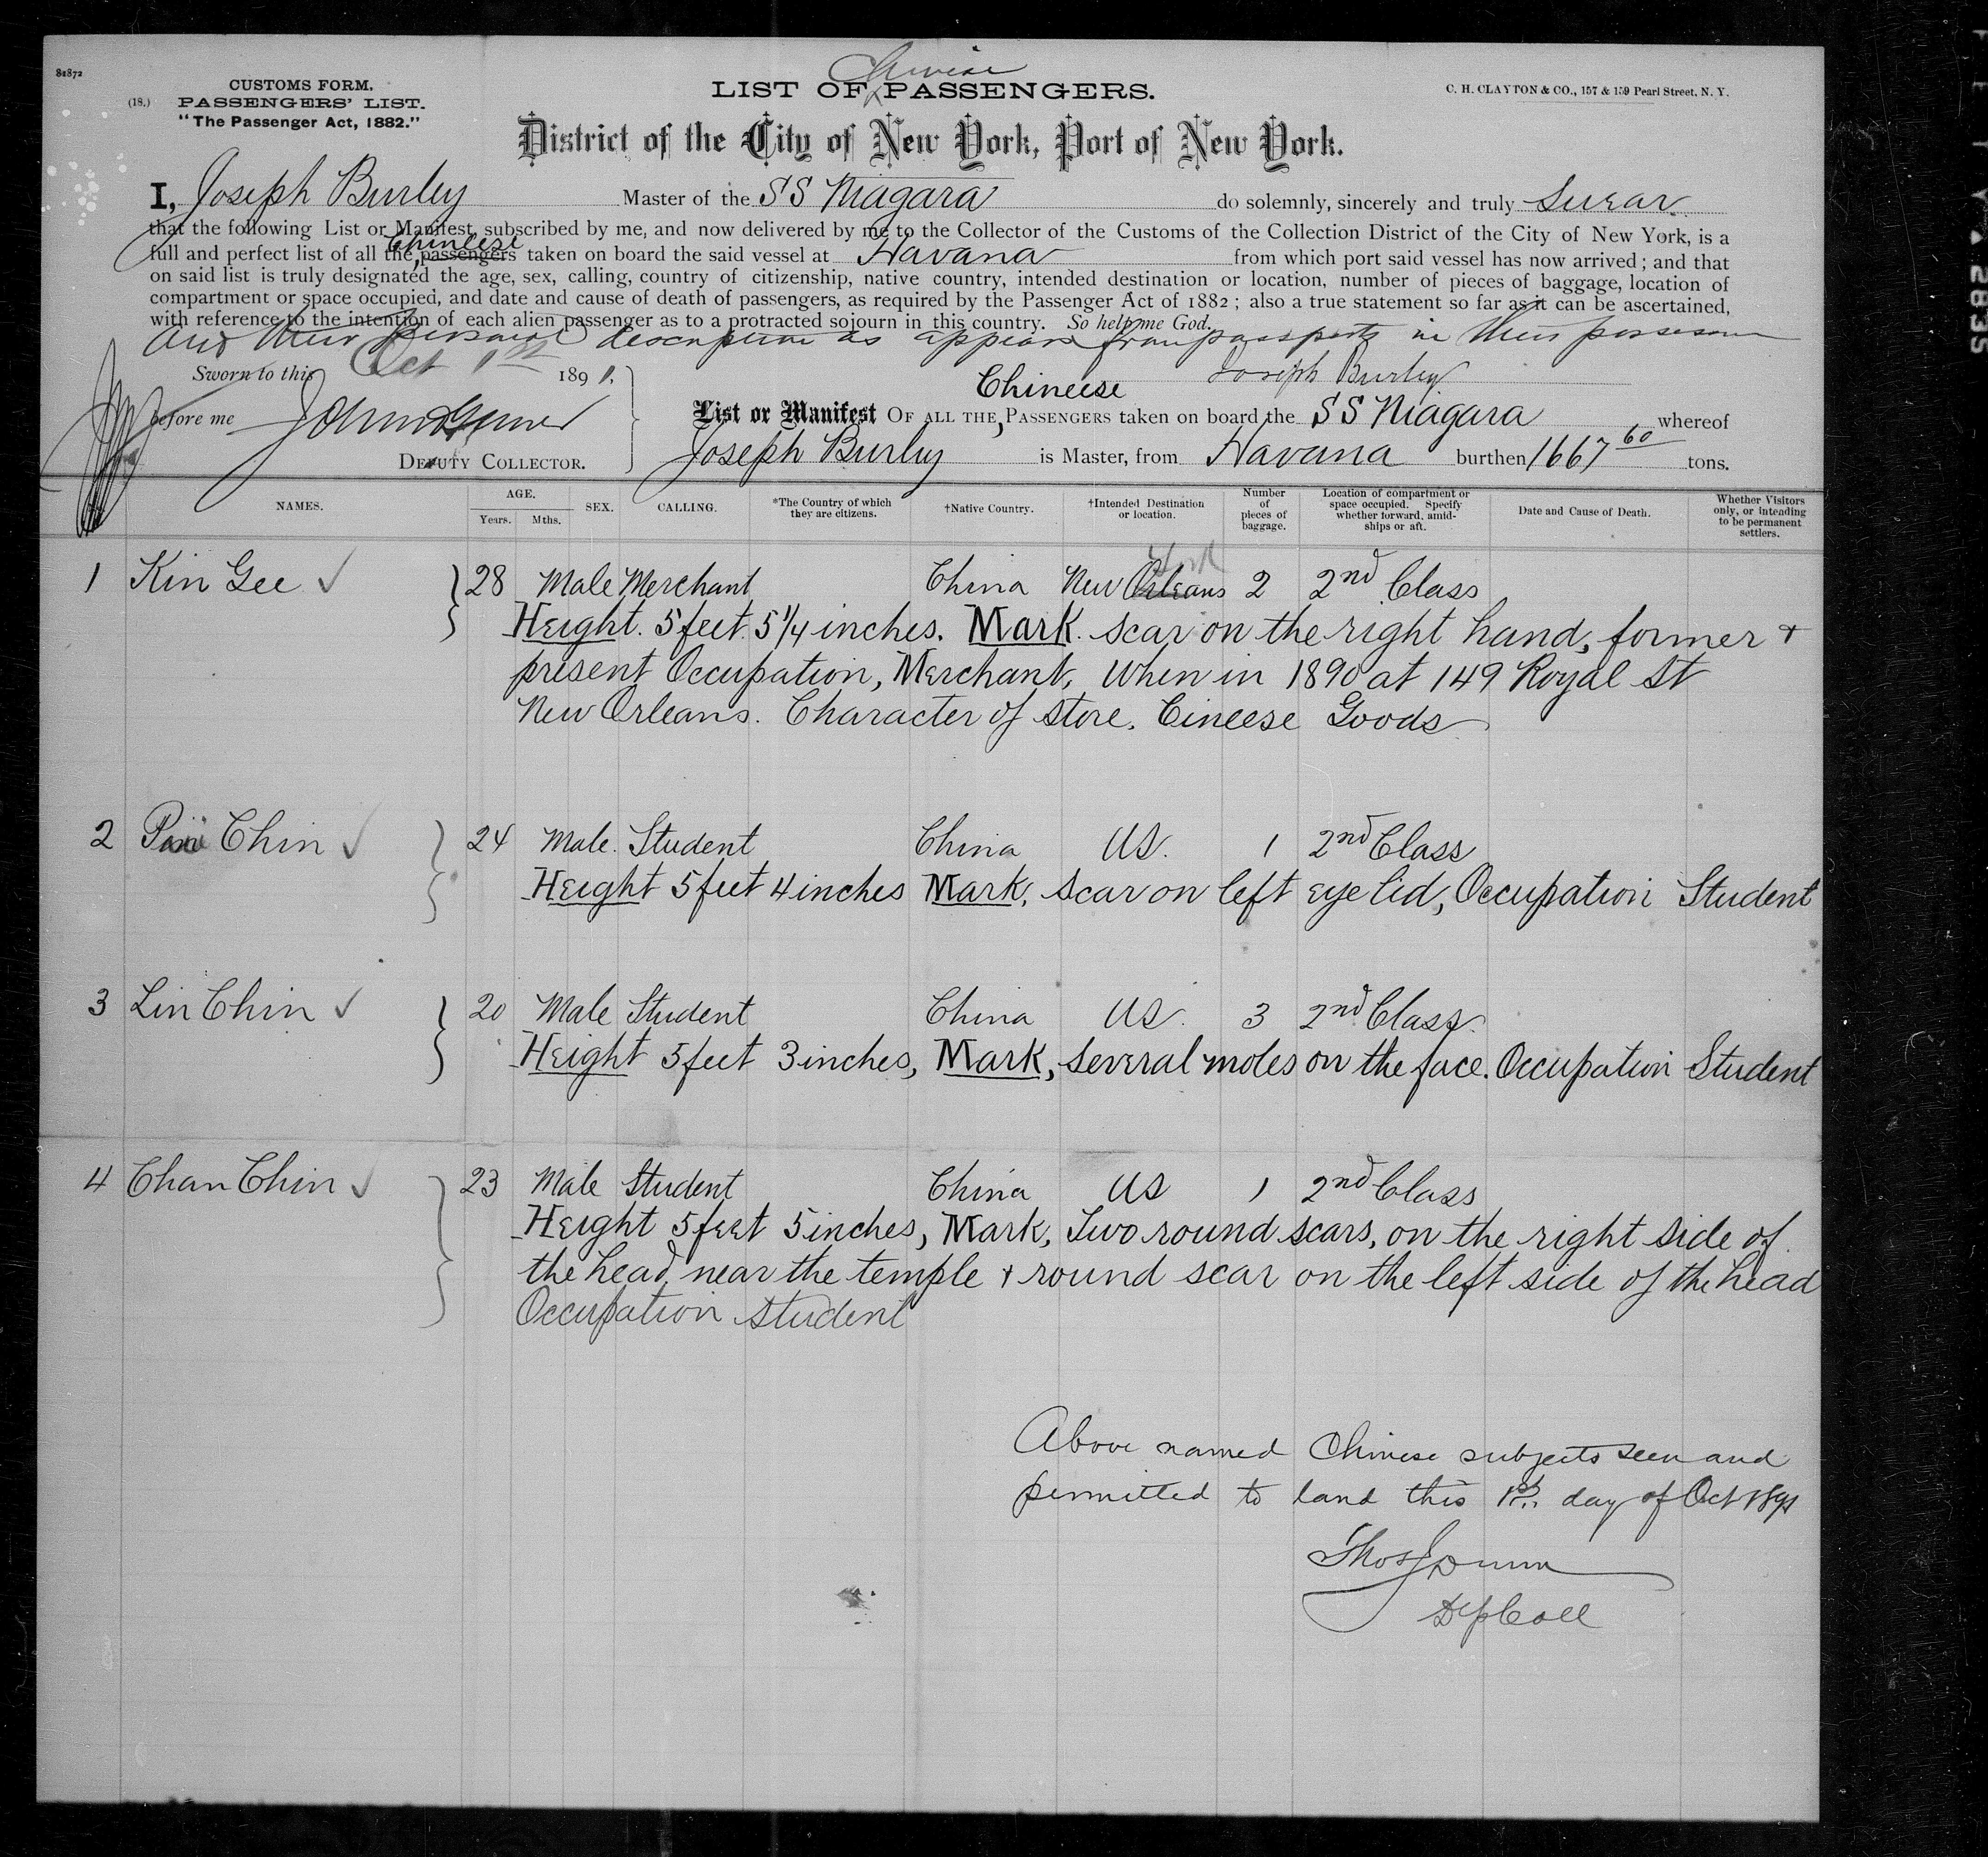 81872
CUSTOMS FORM.
(18.) PASSENGERS' LIST.
"The Passenger Act, 1882."
Chinese
LIST OF PASSENGERS.
C. H. CLAYTON & CO., 157 & 159 Pearl Street, N. Y.
District of the City of New York, Port of New York.
I, Joseph Burley Master of the SS Niagara do solemnly, sincerely and truly Swear
that the following List or Manifest, subscribed by me, and now delivered by me to the Collector of the Customs of the Collection District of the City of New York, is a
Chineese
full and perfect list of all the passengers taken on board the said vessel at Havana from which port said vessel has now arrived; and that
on said list is truly designated the age, sex, calling, country of citizenship, native country, intended destination or location, number of pieces of baggage, location of
compartment or space occupied, and date and cause of death of passengers, as required by the Passenger Act of 1882; also a true statement so far as it can be ascertained,
with reference to the intention of each alien passenger as to a protracted sojourn in this country. So help me God.
and their personal description as appears from passports in their possession
Sworn to this Oct 1st 1891,
Joseph Burley
before me
DEPUTY COLLECTOR.
Chineese
List or Manifest OF ALL THE, PASSENGERS taken on board the SS Niagara whereof
Joseph Burley is Master, from Havana burthen 1667 60 tons.
NAMES. AGE. Years. Mths. SEX. CALLING. *The Country of which they are citizens. †Native Country. †Intended Destination or location. Number of pieces of baggage. Location of compartment or space occupied. Specify whether forward, amidships or aft. Date and Cause of Death. Whether Visitors only, or intending to be permanent settlers.
York
1 Kin Gee ✓ 28 Male Merchant China New Orleans 2 2nd Class
Height. 5 feet 5 1/4 inches. Mark. scar on the right hand, former +
present Occupation, Merchant, When in 1890 at 149 Royal St
New Orleans. Character of store. Cineese Goods
2 Chin ✓ 24 Male. Student China US. 1 2nd Class
Height 5 feet 4 inches Mark, scar on left eye lid, Occupation Student
3 Lin Chin ✓ 20 Male Student China US. 3 2nd Class.
Height 5 feet 3 inches, Mark, several moles on the face. Occupation Student
4 Chan Chin ✓ 23 Male Student China US 1 2nd Class
Height 5 feet 5 inches, Mark, Two round scars, on the right side of
the head, near the temple + round scar on the left side of the head
Occupation student
Above named Chinese subjects seen and
permitted to land this 1st day of Oct 1891
Thos J Dunn
Dep Coll